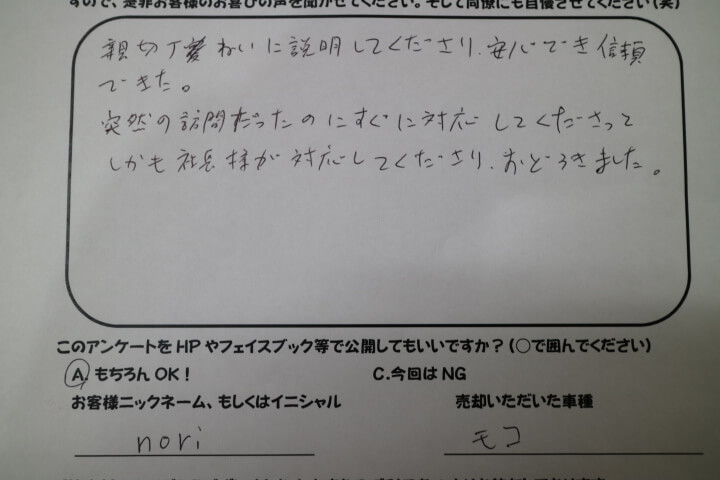 すので、是非お客様のお喜びの声を聞かせてください。そして同僚にも自慢させてください(笑)
親切丁ねいに説明してくださり、安心でき信頼
できた。
突然の訪問だったのにすぐに対応してくださって
しかも社長様が対応してくださり、おどろきました。
このアンケートをHPやフェイスブック等で公開してもいいですか?(○で囲んでください)
A. もちろんOK! C.今回はNG
お客様ニックネーム、もしくはイニシャル 売却いただいた車種
nori モコ